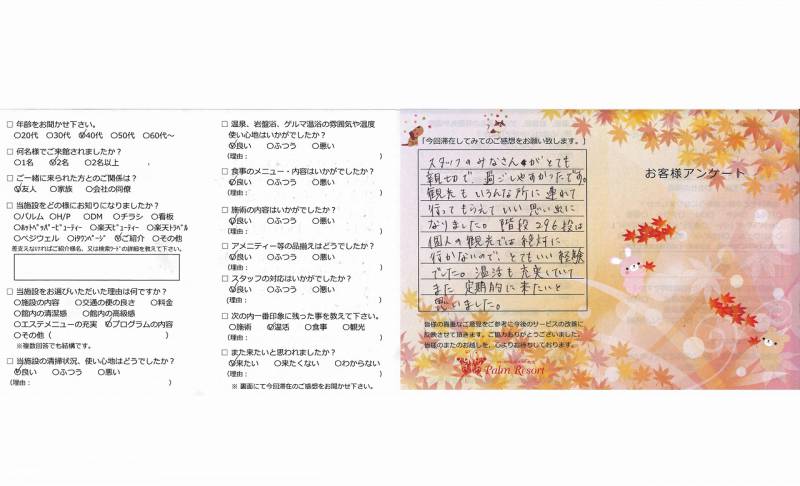 □ 年齢をお聞かせ下さい。
○20代 ○30代 ○40代 ○50代 ○60代～
□ 何名様でご来館されましたか？
○1名 ○2名 ○2名以上
□ ご一緒に来られた方とのご関係は？
○友人 ○家族 ○会社の同僚
□ 当施設をどの様にお知りになりましたか？
○パルム ○H/P ○DM ○チラシ ○看板
○ﾎｯﾄﾍﾟｯﾊﾟｰﾋﾞｭｰﾃｨｰ ○楽天ﾋﾞｭｰﾃｨｰ ○楽天ﾄﾗﾍﾞﾙ
○ベジウェル ○iタウンページ ○ご紹介 ○その他
差支えなければご紹介様名、又は検索ﾜｰﾄﾞの詳細を教えて下さい。
□ 当施設をお選びいただいた理由は何ですか？
○施設の内容 ○交通の便の良さ ○料金
○館内の清潔感 ○館内の高級感
○エステメニューの充実 ○プログラムの内容
○その他（ ）
※複数回答でも結構です。
□ 当施設の清掃状況、使い心地はどうでしたか？
○良い ○ふつう ○悪い
(理由： )
□ 温泉、岩盤浴、ゲルマ温浴の雰囲気や温度
使い心地はいかがでしたか？
○良い ○ふつう ○悪い
(理由： )
□ 食事のメニュー・内容はいかがでしたか？
○良い ○ふつう ○悪い
(理由： )
□ 施術の内容はいかがでしたか？
○良い ○ふつう ○悪い
(理由： )
□ アメニティー等の品揃えはどうでしたか？
○良い ○ふつう ○悪い
(理由： )
□ スタッフの対応はいかがでしたか？
○良い ○ふつう ○悪い
(理由： )
□ 次の内一番印象に残った事を教えて下さい。
○施術 ○温活 ○食事 ○観光
(理由： )
□ また来たいと思われましたか？
○来たい ○来たくない ○わからない
(理由： )
※ 裏面にて今回滞在のご感想をお聞かせ下さい。
「今回滞在してみてのご感想をお願い致します。」
スタッフのみなさんがとても
親切で、過ごしやすかったです。
観光もいろんな所に連れて
行ってもらえていい思い出に
なりました。階段296段は
個人の観光では絶対に
行かないので、とてもいい経験
でした。温活も充実していて
また定期的に来たいと
思いました。
皆様の貴重なご意見をご参考に今後のサービスの改善に
反映させて頂きます。ご協力ありがとうございました。
皆様のまたのお越しを、心よりお待ちしております。
Palm Resort
お客様アンケート